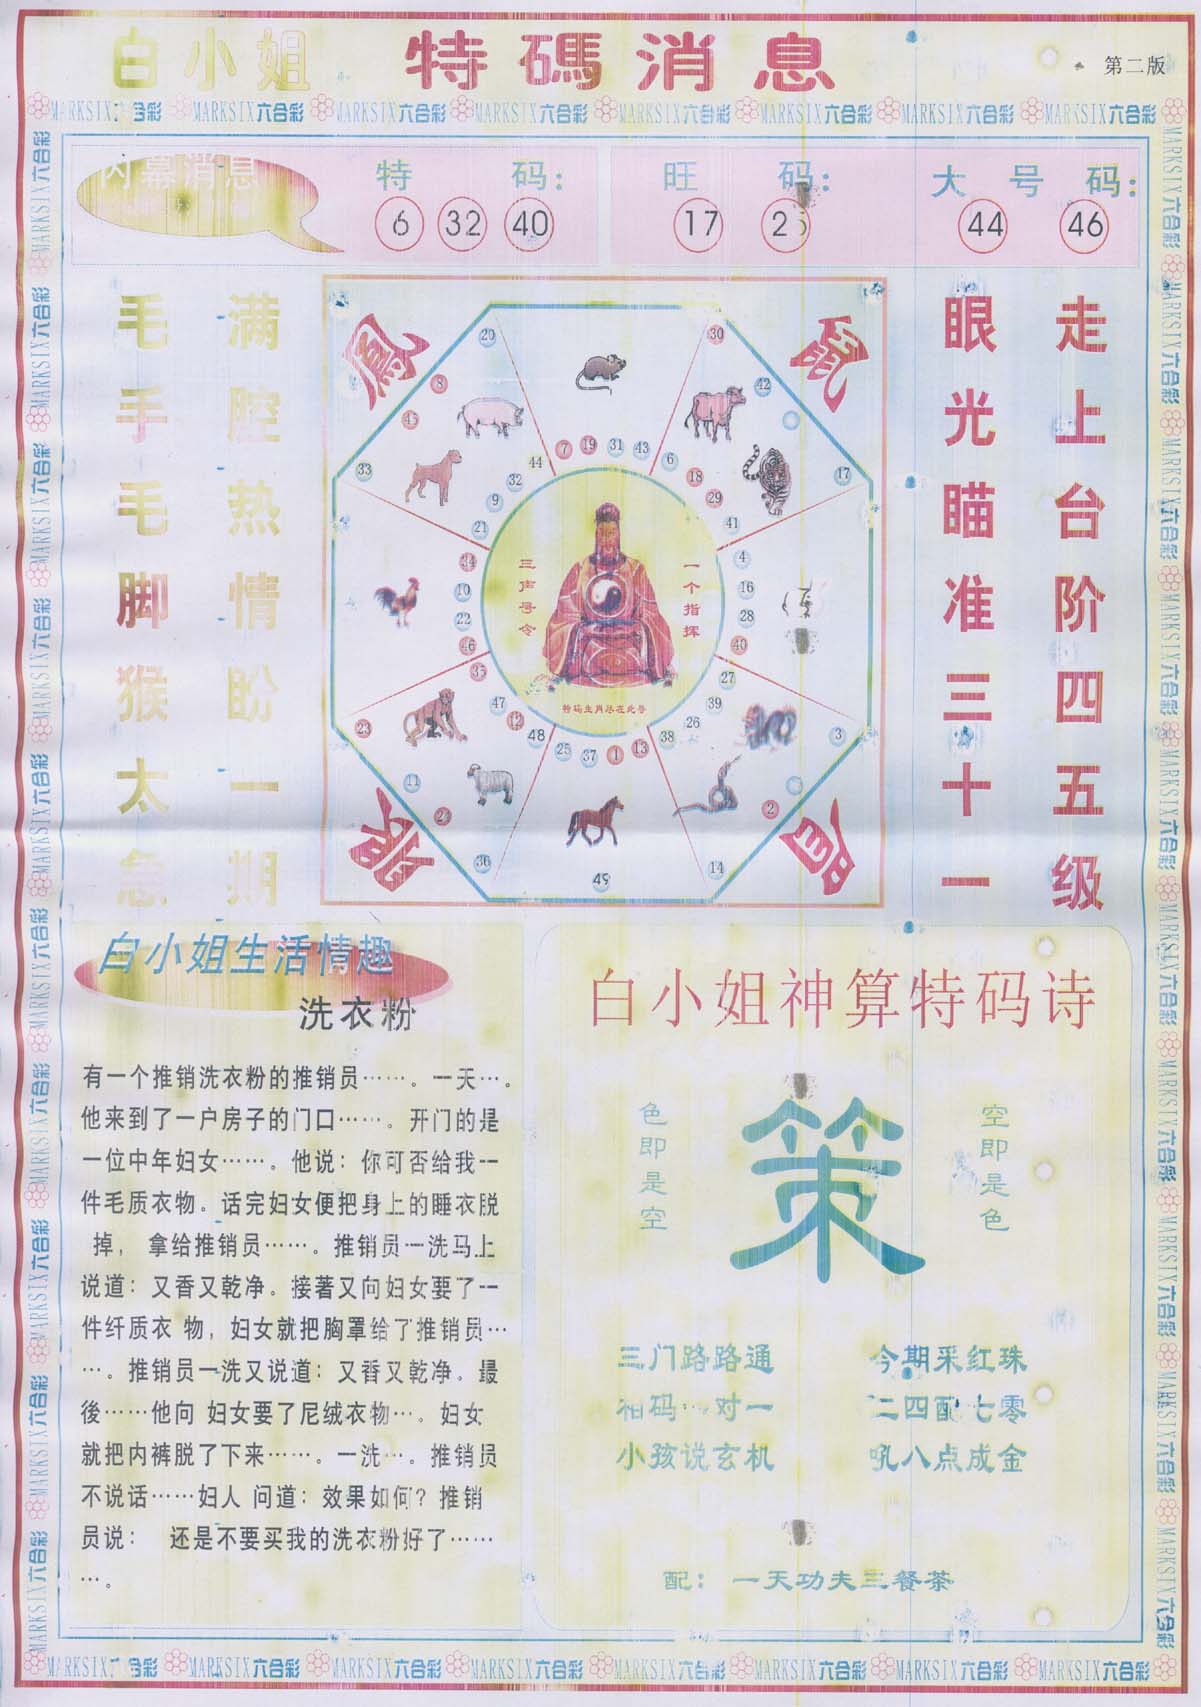 白小姐 特碼消息 第二版
MARKSIX六合彩 MARKSIX六合彩 MARKSIX六合彩 MARKSIX六合彩 MARKSIX六合彩 MARKSIX六合彩 MARKSIX六合彩 MARKSIX六合彩
内幕消息
特 码:
6 32 40
旺 码:
17
大 号 码:
44 46
毛手毛脚猴太急
满腔热情盼一期
眼光瞄准三十一
走上台阶四五级
鳳
鼠
20 30
8 42
45
33 17
7 19 31 43
44 6
32 18
9 29
21 41
34 4
10 16
22 28
46 40
35 27
47 39
12 26
48 38
25 37 1 13
23 3
11
2
36 14
49
三声号令
一个指挥
特码生肖尽在此号
白小姐生活情趣
洗衣粉
有一个推销洗衣粉的推销员……。一天…。
他来到了一户房子的门口……。开门的是
一位中年妇女……。他说：你可否给我一
件毛质衣物。话完妇女便把身上的睡衣脱
掉， 拿给推销员……。推销员一洗马上
说道：又香又乾净。接著又向妇女要了一
件纤质衣 物，妇女就把胸罩给了推销员…
…。推销员一洗又说道：又香又乾净。最
後……他向 妇女要了尼绒衣物…。妇女
就把内裤脱了下来……。一洗…。推销员
不说话……妇人 问道：效果如何？推销
员说： 还是不要买我的洗衣粉好了……
…。
白小姐神算特码诗
色即是空
策
空即是色
三门路路通 今期采红珠
对一 二四配七零
小孩说玄机 吼八点成金
配： 一天功夫三餐茶
MARKSIX六合彩 MARKSIX六合彩 MARKSIX六合彩 MARKSIX六合彩 MARKSIX六合彩 MARKSIX六合彩 MARKSIX六合彩 MARKSIX六合彩